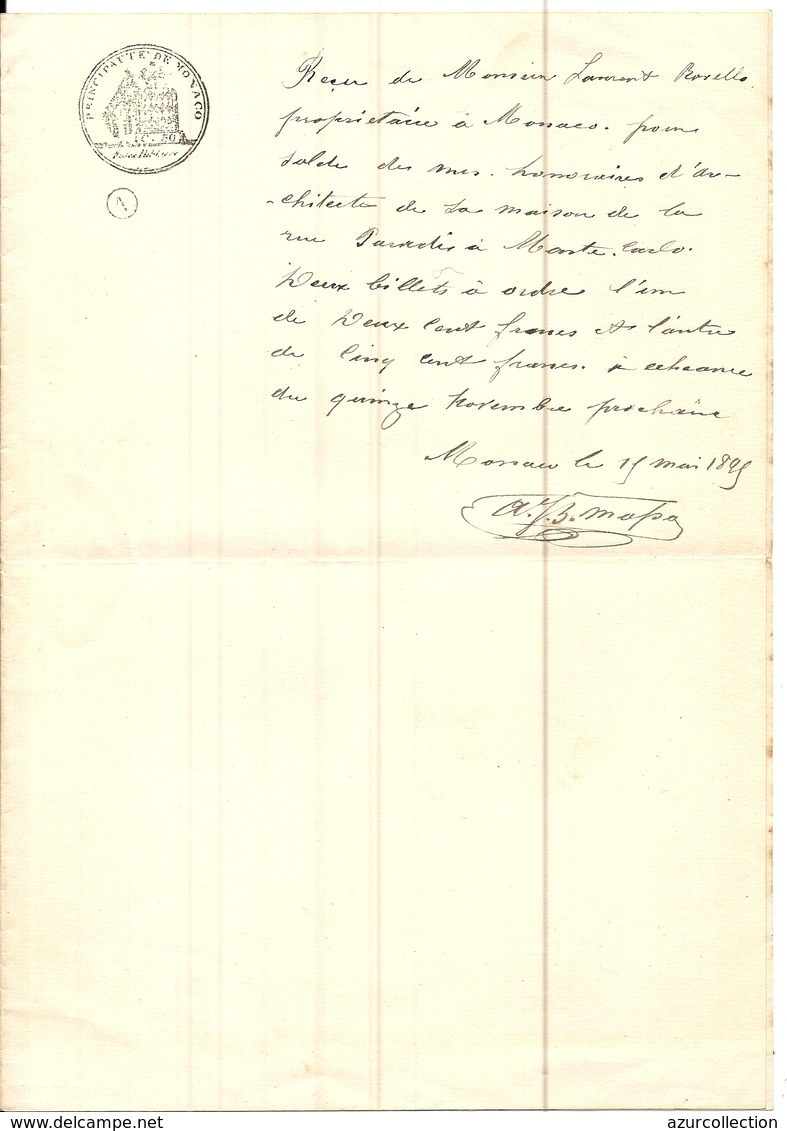 PRINCIPAUTÉ DE MONACO
C. 50
Reçu de Monsieur Laurent Rovello
propriétaire à Monaco. pour
solde des mes. honoraires d'ar-
-chitecte de la maison de la
rue Paradis à Monte. Carlo.
Deux billets à ordre l'un
de Deux Cent francs et l'autre
de Cinq cent francs. à échéance
du quinze Novembre prochain
Monaco le 15 mai 1895
A. J. B.
www.delcampe.net
azurcollection